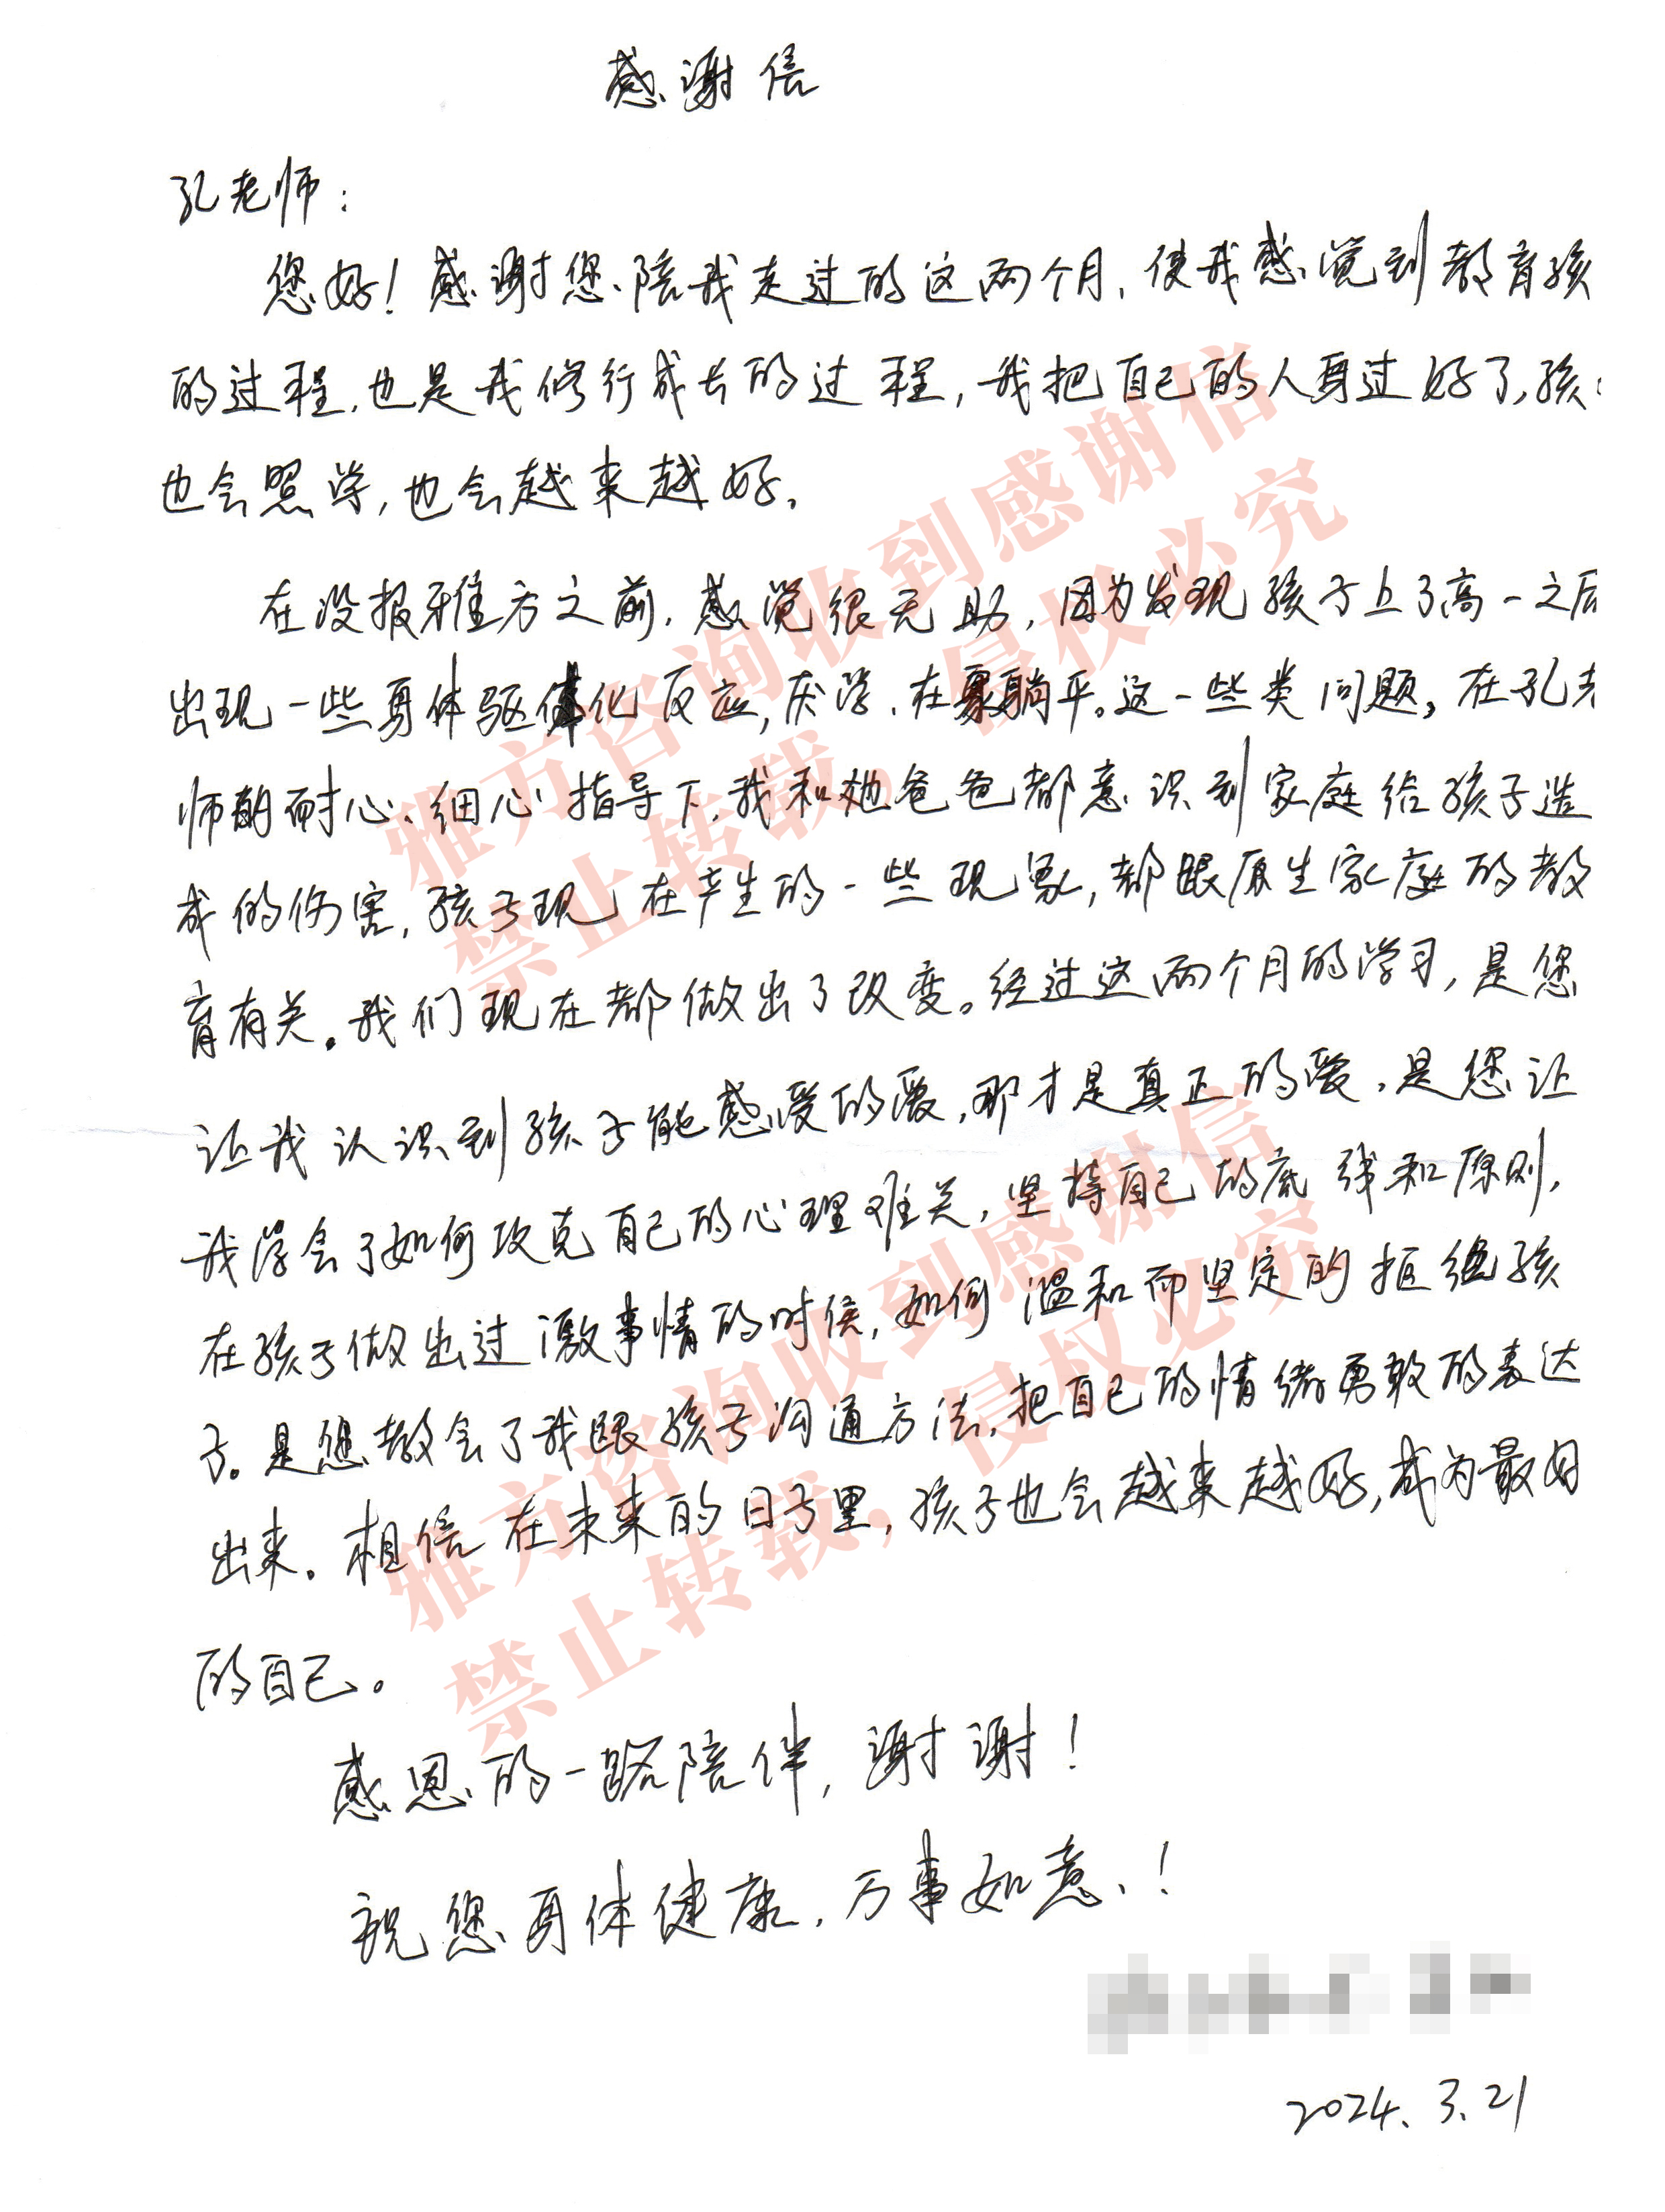 感谢信
孔老师：
您好！感谢您陪我走过的这两个月，使我感觉到教育孩
的过程，也是我修行成长的过程，我把自己的人身过好了，孩
也会照学，也会越来越好。
在没报雅方之前，感觉很无助，因为发现孩子上了高一之后
出现一些身体驱体化反应，厌学、在家躺平。这一些类问题，在孔老
师的耐心、细心指导下，我和她爸爸都意识到家庭给孩子造
成的伤害，孩子现在产生的一些现象，都跟原生家庭的教
育有关。我们现在都做出了改变。经过这两个月的学习，是您
让我认识到孩子能感受的爱，那才是真正的爱，是您让
我学会了如何攻克自己的心理难关，坚持自己的底线和原则，
在孩子做出过激事情的时候，如何温和而坚定的拒绝孩
子。是您教会了我跟孩子沟通方法，把自己的情绪勇敢的表达
出来。相信在未来的日子里，孩子也会越来越好，成为最好
的自己。
感恩的一路陪伴，谢谢！
祝您身体健康，万事如意！
2024.3.21
雅方咨询收到感谢信
禁止转载，侵权必究
雅方咨询收到感谢信
禁止转载，侵权必究